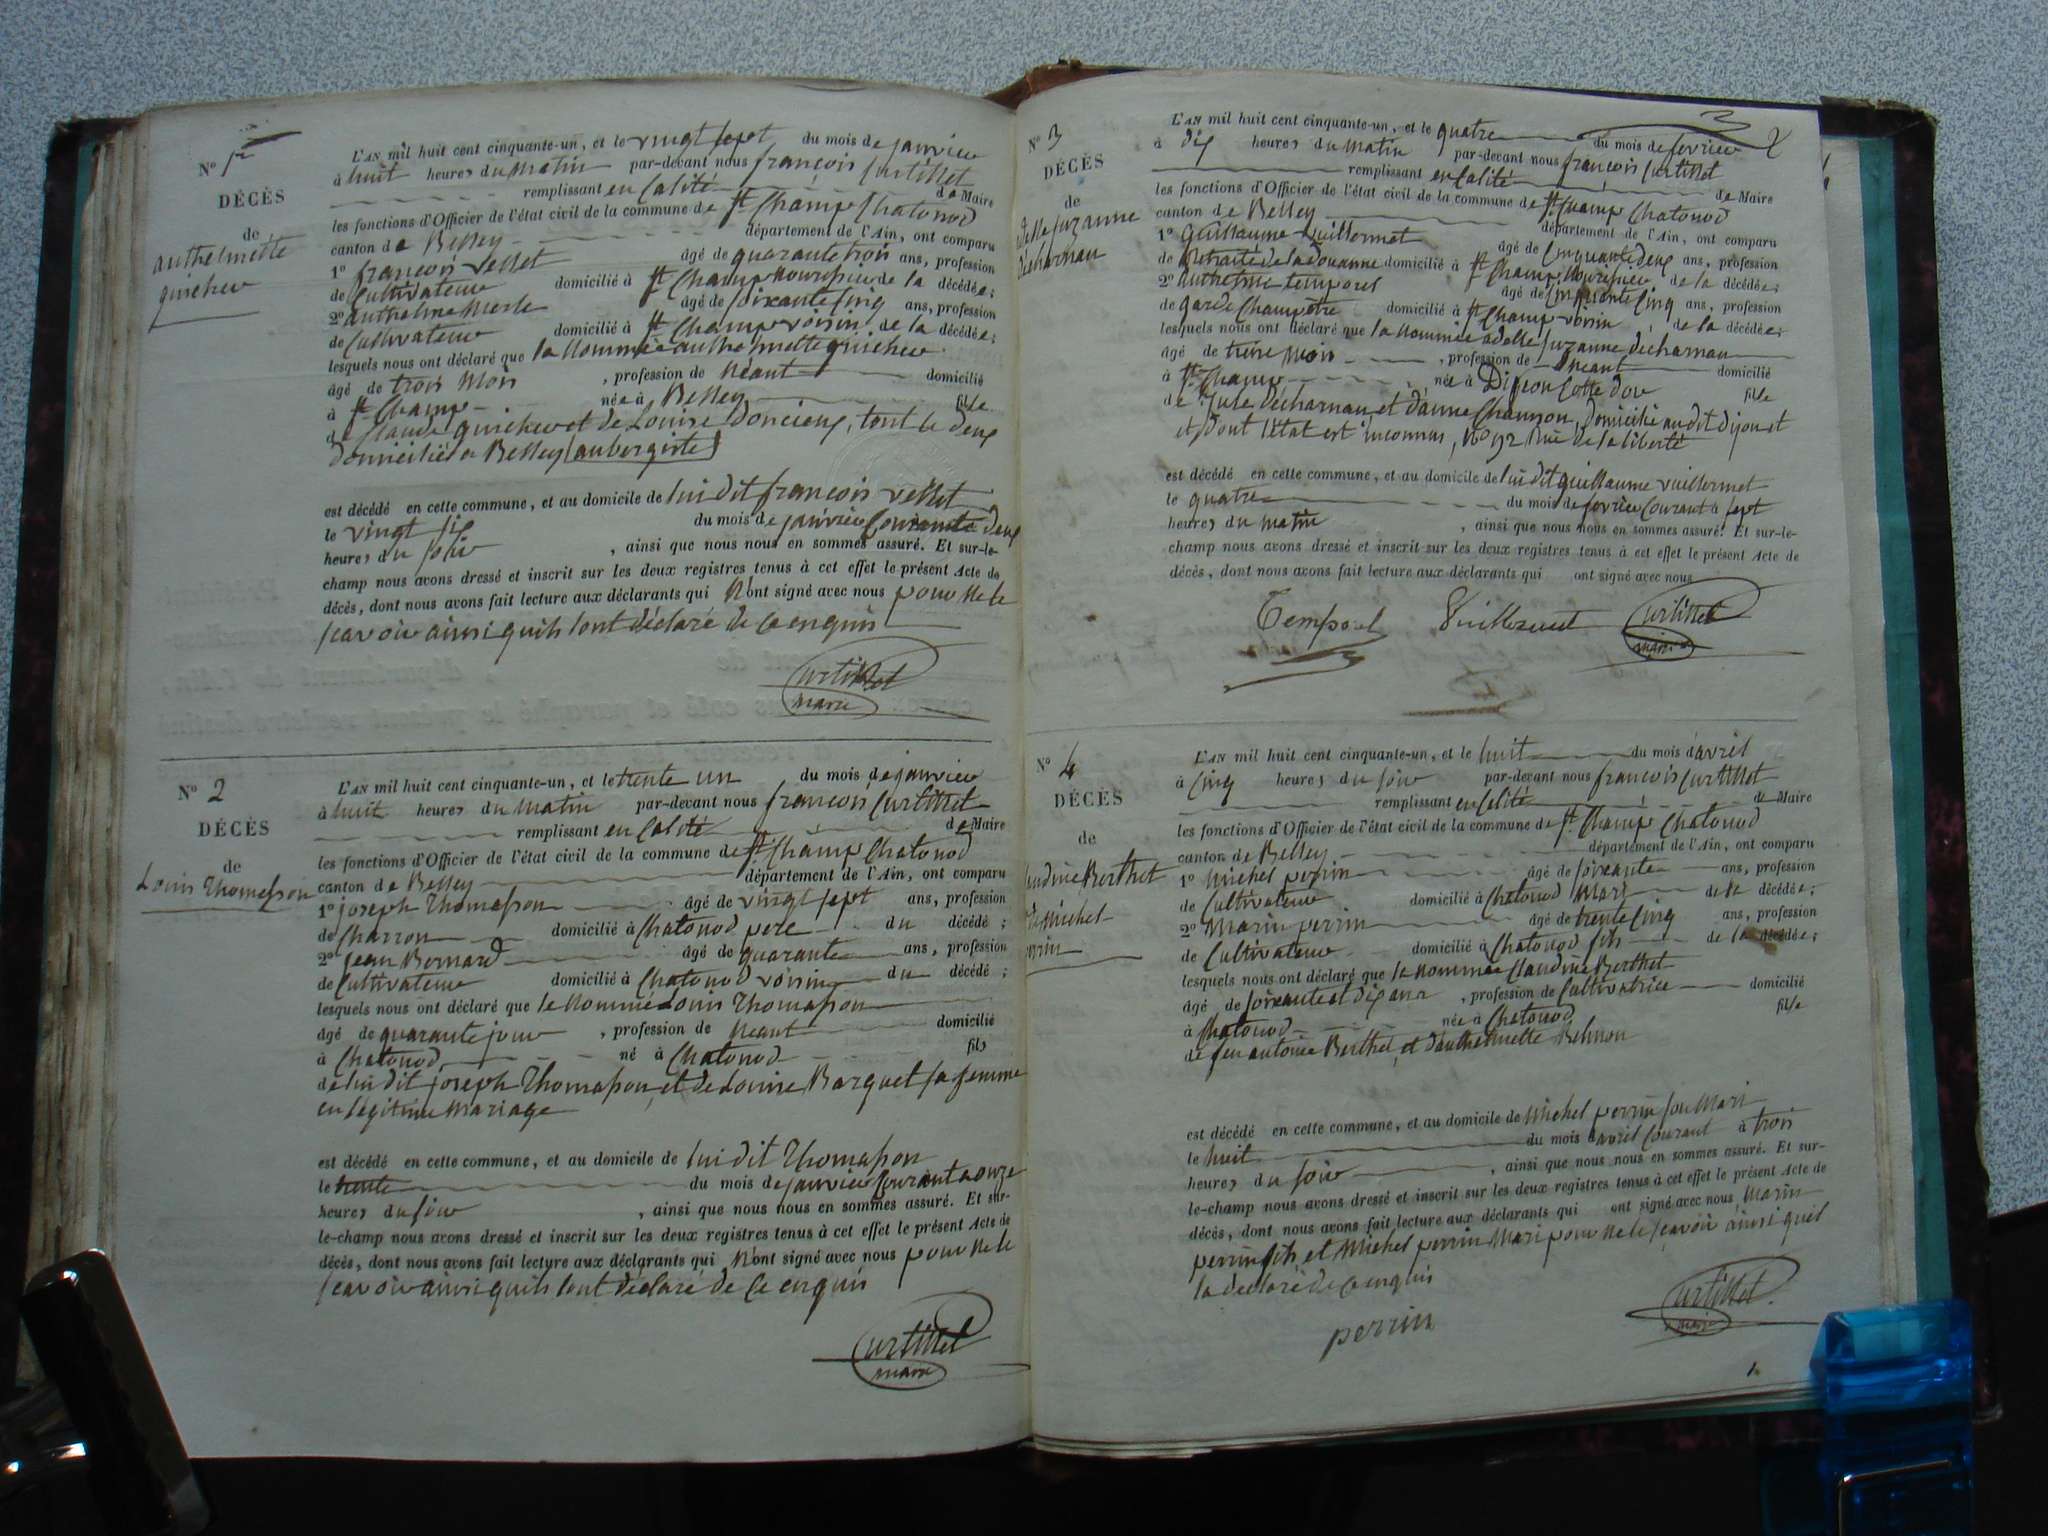 No 1er
DÉCÈS
de
anthelmette
guicher
L'AN mil huit cent cinquante-un, et le vingt sept du mois de janvier
à huit heures du matin par-devant nous françois Curtillet
remplissant en Calité de Maire
les fonctions d'Officier de l'état civil de la commune de St Champ Chatonod
canton de Belley département de l'Ain, ont comparu
1º françois vellet âgé de quarante trois ans, profession
de Cultivateur domicilié à St Champ nourrisseur de la décédée;
2º anthelme Merle âgé de soixante Cinq ans, profession
de Cultivateur domicilié à St Champ voisin de la décédée;
lesquels nous ont déclaré que la Nommée anthelmette guicher
âgé de trois Mois , profession de Neant domicilié
à St Champ née à Belley fille
de Claude guicher et de Louise Doncieux, tout le deux
domiciliés a Belley [aubergiste]
est décédé en cette commune, et au domicile de lui dit françois vellet
le vingt six du mois de janvier Courant a Deux
heures du soir , ainsi que nous nous en sommes assuré. Et sur-le-
champ nous avons dressé et inscrit sur les deux registres tenus à cet effet le présent Acte de
décès, dont nous avons fait lecture aux déclarants qui N'ont signé avec nous pour ne le
scavoir ainsi quils lont déclaré de Ce enquis
Curtillet
maire
No 2
DÉCÈS
de
Louis Thomasson
L'AN mil huit cent cinquante-un, et le trente un du mois de janvier
à huit heures du matin par-devant nous françois Curtillet
remplissant en Calité de Maire
les fonctions d'Officier de l'état civil de la commune de St Champ Chatonod
canton de Belley département de l'Ain, ont comparu
1º joseph Thomasson âgé de vingt sept ans, profession
de Charron domicilié à Chatonod pere du décédé;
2º jean Bernard âgé de quarante ans, profession
de Cultivateur domicilié à Chatonod voisin du décédé;
lesquels nous ont déclaré que le Nommé Louis Thomasson
âgé de quarante jour , profession de Neant domicilié
à Chatonod né à Chatonod fils
de lui dit joseph Thomasson, et de Louise Barquet sa femme
en légitime Mariage
est décédé en cette commune, et au domicile de lui dit Thomasson
le trente du mois de janvier Courant a onze
heures du soir , ainsi que nous nous en sommes assuré. Et sur-
le-champ nous avons dressé et inscrit sur les deux registres tenus à cet effet le présent Acte de
décès, dont nous avons fait lecture aux déclarants qui N'ont signé avec nous pour ne le
scavoir ainsi quils lont déclaré de Ce enquis
Curtillet
maire
2
No 3
DÉCÈS
de
adelle Suzanne
decharnau
L'AN mil huit cent cinquante-un, et le quatre du mois de fevrier
à dix heures du matin par-devant nous françois Curtillet
remplissant en Calité de Maire
les fonctions d'Officier de l'état civil de la commune de St Champ Chatonod
canton de Belley département de l'Ain, ont comparu
1º guillaume vuillermet âgé de Cinquante deux ans, profession
de Retraité de la douanne domicilié à St Champ Nourissier de la décédée;
2º anthelme temporel âgé de Cinquante Cinq ans, profession
de garde Champêtre domicilié à St Champ voisin de la décédée;
lesquels nous ont déclaré que la Nommée adelle Suzanne decharnau
âgé de treise Mois , profession de Neant domicilié
à St Champ née à Dijeon Cotte dor fille
de Jule decharnau, et danne Chanson, domicilié audit dijon et
et dont l'état est inconnus, No 92 Rue de la liberté
est décédé en cette commune, et au domicile de lui dit guillaume vuillermet
le quatre du mois de fevrier Courant a sept
heures du matin , ainsi que nous nous en sommes assuré. Et sur-le-
champ nous avons dressé et inscrit sur les deux registres tenus à cet effet le présent Acte de
décès, dont nous avons fait lecture aux déclarants qui ont signé avec nous
Temporel Vuillermet Curtillet
maire
No 4
DÉCÈS
de
Berthet
Michel
L'AN mil huit cent cinquante-un, et le huit du mois d'avril
à Cinq heures du soir par-devant nous françois Curtillet
remplissant en Calité de Maire
les fonctions d'Officier de l'état civil de la commune de St Champ Chatonod
canton de Belley département de l'Ain, ont comparu
1º Michel perrin âgé de soixante ans, profession
de Cultivateur domicilié à Chatonod Mari de la décédée;
2º Marin perrin âgé de trente Cinq ans, profession
de Cultivateur domicilié à Chatonod fils de la décédée;
lesquels nous ont déclaré que la Nommée Claudine Berthet
âgé de soixante et dix ans , profession de Cultivatrice domicilié
à Chatonod née à Chatonod fille
de feu antoine Berthet, et d'anthelmette
est décédé en cette commune, et au domicile de Michel perrin son Mari
le huit du mois d'avril Courant à trois
heures du soir , ainsi que nous nous en sommes assuré. Et sur-
le-champ nous avons dressé et inscrit sur les deux registres tenus à cet effet le présent Acte de
décès, dont nous avons fait lecture aux déclarants qui ont signé avec nous Marin
perrin fils, et Michel perrin Mari pour ne le scavoir ainsi quil
la declaré de Ce enquis
perrin
Curtillet
maire